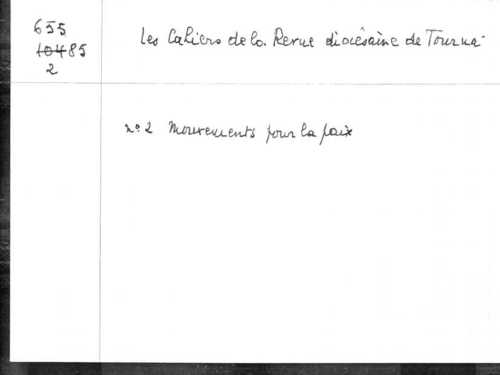 655
10485
2
Les Cahiers de la Revue diocésaine de Tournai
n° 2 Mouvements pour la paix